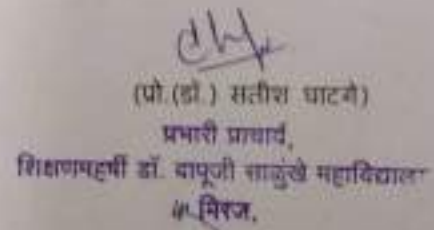 (प्रो.(डॉ.) सतीश घाटगे)
प्रभारी प्राचार्य,
शिक्षणमहर्षी डॉ. बापूजी साळुंखे महाविद्यालय
मिरज.